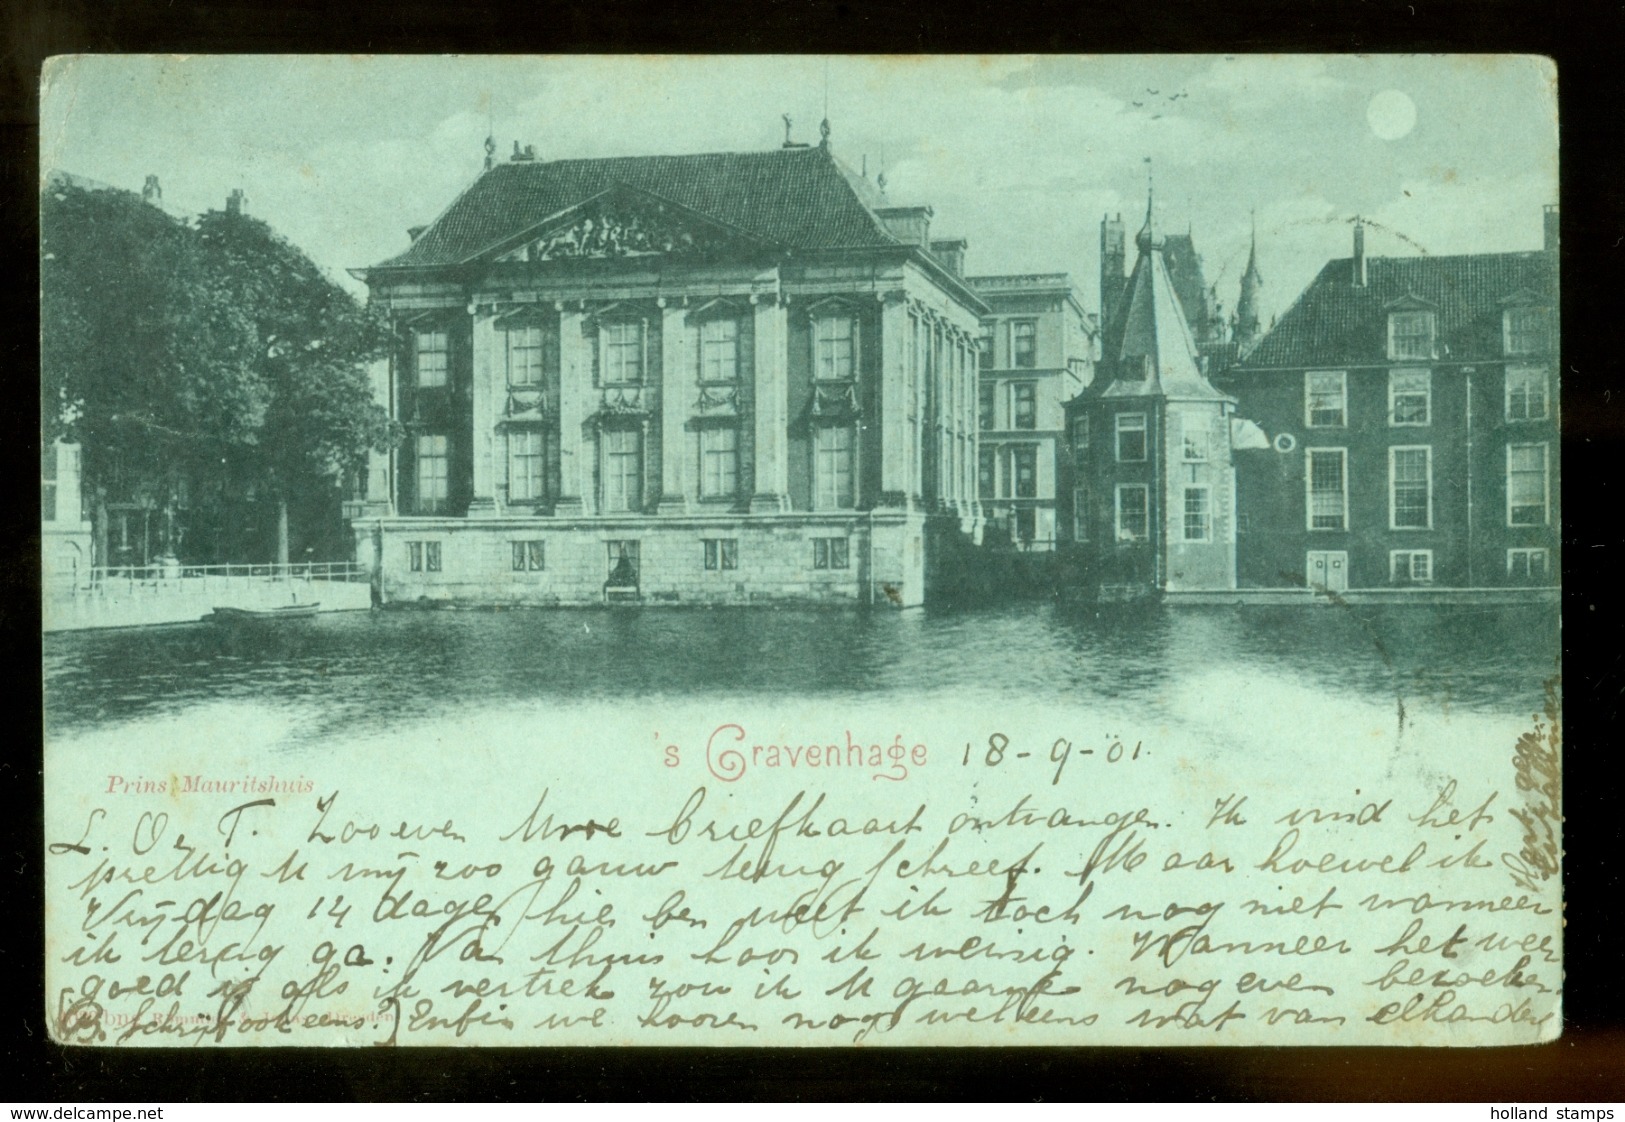 's Gravenhage 18-9-01.
Prins Mauritshuis
L. O. T. Zooeven Uwe briefkaart ontvangen. Ik vind het
prettig U mij zoo gauw terug schreef. Maar hoewel ik
Vrijdag 14 dagen hier ben weet ik toch nog niet wanneer
ik terug ga. Van thuis hoor ik weinig. Wanneer het weer
goed is als ik vertrek zou ik U gaarne nog even bezoeken
schrijf ook eens.) Enfin we hooren nog wel eens wat van elkander
Hart. gegr.
www.delcampe.net
holland stamps